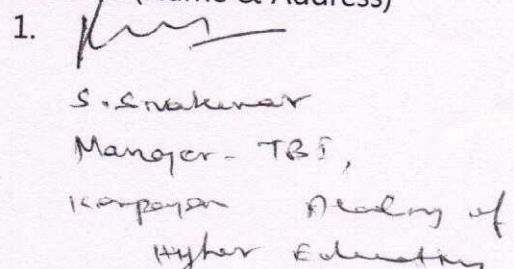 (Name & Address)
1.
S. Sivakumar
Manager - TBI,
Karpagam Academy of
Higher Education